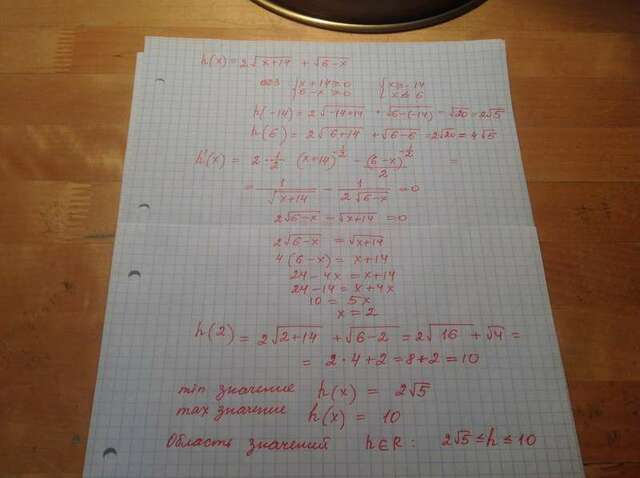 h(x)=2√(x+14) + √(6-x)
ОДЗ {x+14≥0 {x≥-14
{6-x≥0 {x≤6
h(-14) = 2√(-14+14) + √(6-(-14)) = √20 = 2√5
h(6) = 2√(6+14) + √(6-6) = 2√20 = 4√5
h'(x) = 2·1/2 (x+14)^(-1/2) - (6-x)^(-1/2)/2 =
= 1/√(x+14) - 1/(2√(6-x)) = 0
2√(6-x) - √(x+14) = 0
2√(6-x) = √(x+14)
4(6-x) = x+14
24-4x = x+14
24-14 = x+4x
10 = 5x
x = 2
h(2) = 2√(2+14) + √(6-2) = 2√16 + √4 =
= 2·4+2 = 8+2 = 10
min значение h(x) = 2√5
max значение h(x) = 10
Область значений h∈R: 2√5 ≤ h ≤ 10